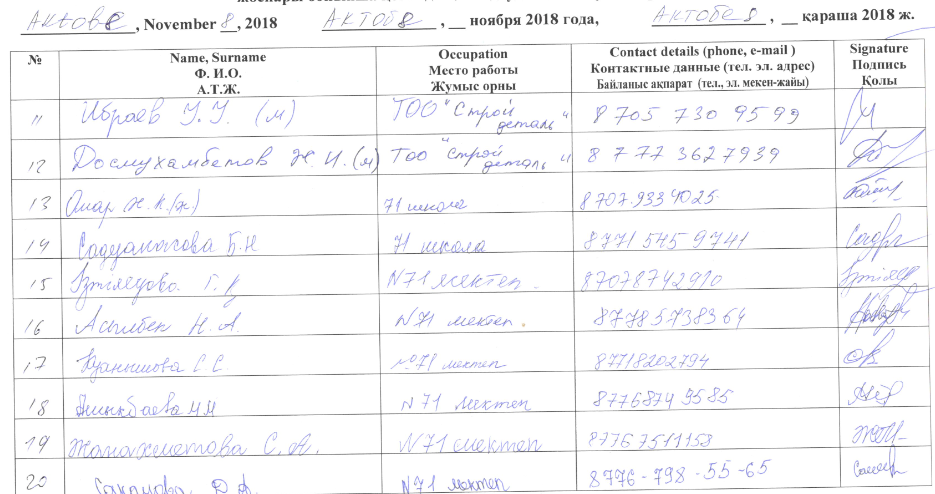 Актобе, November 8, 2018 Актобе, __ ноября 2018 года, Актобе, __ қараша 2018 ж.
№ Name, Surname Ф. И.О. А.Т.Ж. Occupation Место работы Жумыс орны Contact details (phone, e-mail ) Контактные данные (тел. эл. адрес) Байланыс ақпарат (тел., эл. мекен-жайы) Signature Подпись Қолы
11 Ибраев У.У. (м) ТОО "Строй деталь" 8 705 730 95 99
12 Досмухамбетов Ж.И. (м) Тоо "Строй деталь" 8 777 3627939
13 Омар Ж.К. (ж) 71 школа 8707.9334025.
14 Садуакасова Б.Н 71 школа 8771 545 9741
15 Г. Қ N71 мектеп. 87078742910
16 Асылбек Н. А. N71 мектеп. 87785738364
17 Куанышова С С. №71 мектеп 87718202794
18 М М N 71 мектеп 87768749585
19 Жанахметова С. А. N71 мектеп 87767511153
20 Д. А. N71 мектеп 8776-798-55-65